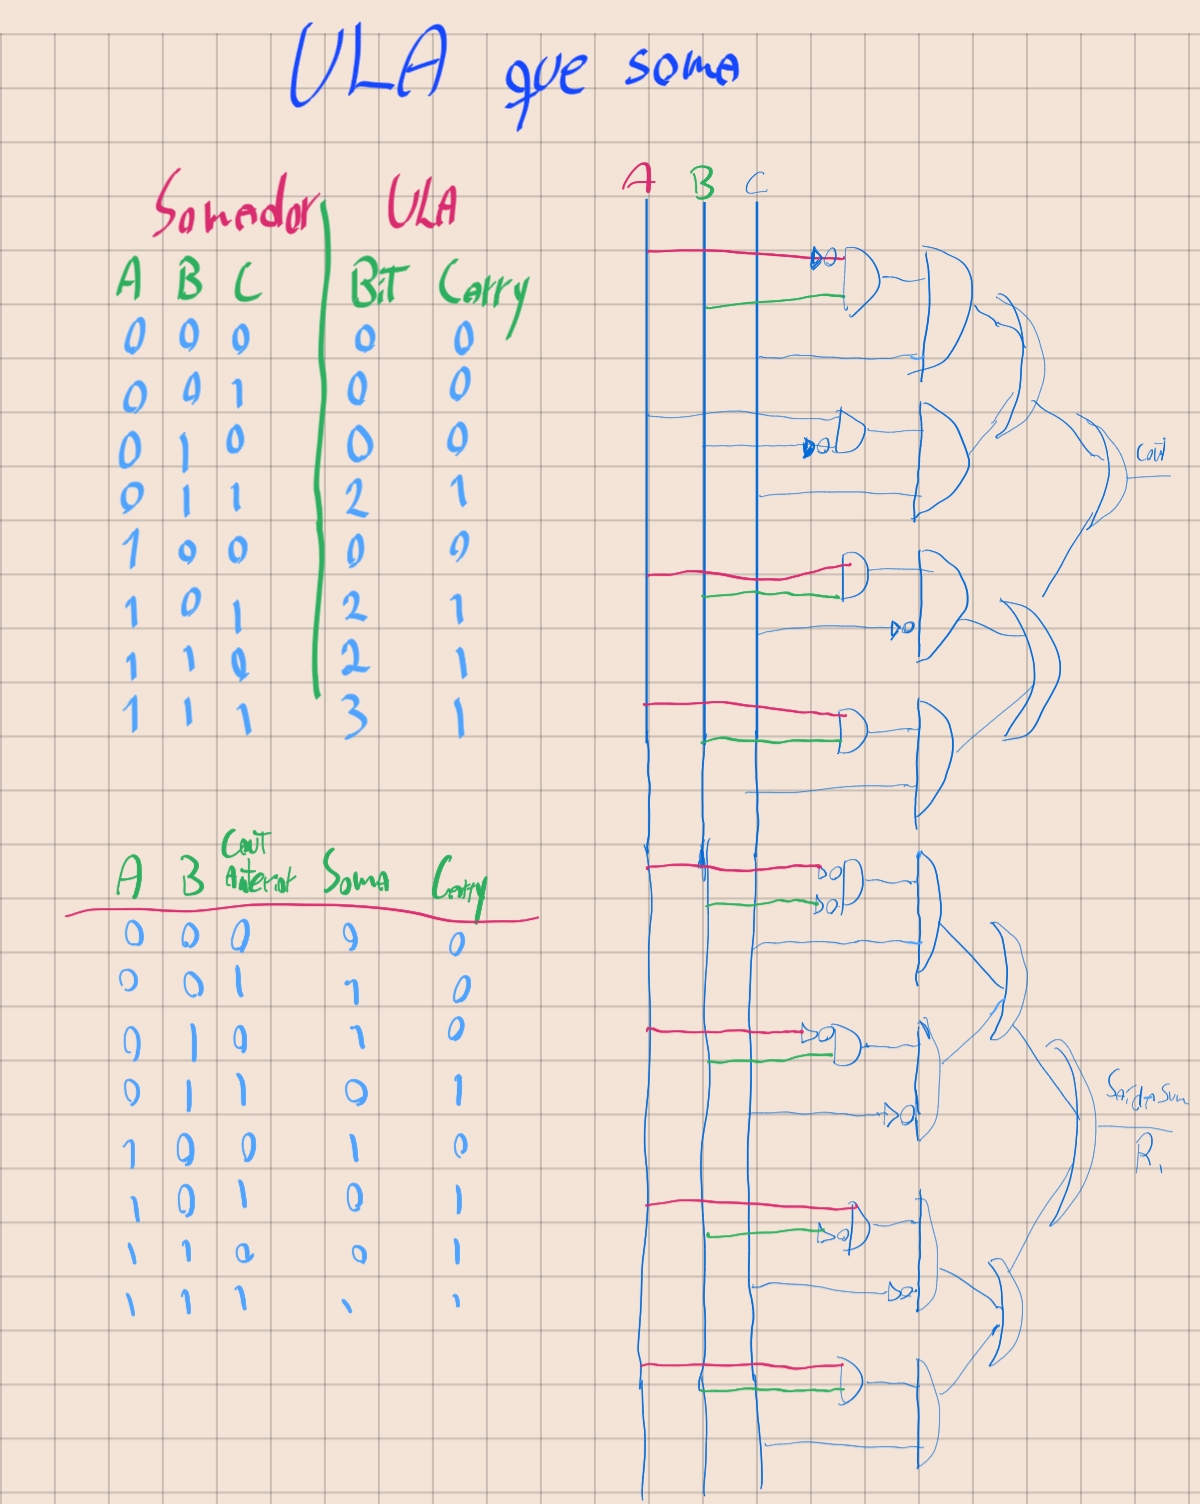 ULA que soma
Somador ULA
A B C BiT Carry
0 0 0 0 0
0 0 1 0 0
0 1 0 0 0
0 1 1 2 1
1 0 0 0 0
1 0 1 2 1
1 1 0 2 1
1 1 1 3 1
A B Cout Soma Carry
0 0 0 0 0
0 0 1 1 0
0 1 0 1 0
0 1 1 0 1
1 0 0 1 0
1 0 1 0 1
1 1 0 0 1
1 1 1 1 1
A B C
Cout
R1